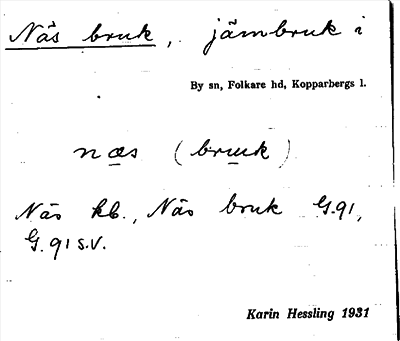 Näs bruk, järnbruk i
By sn, Folkare hd, Kopparbergs l.
næs (bruk)
Näs kb., Näs bruk G.91,
G.91 s.v.
Karin Hessling 1931